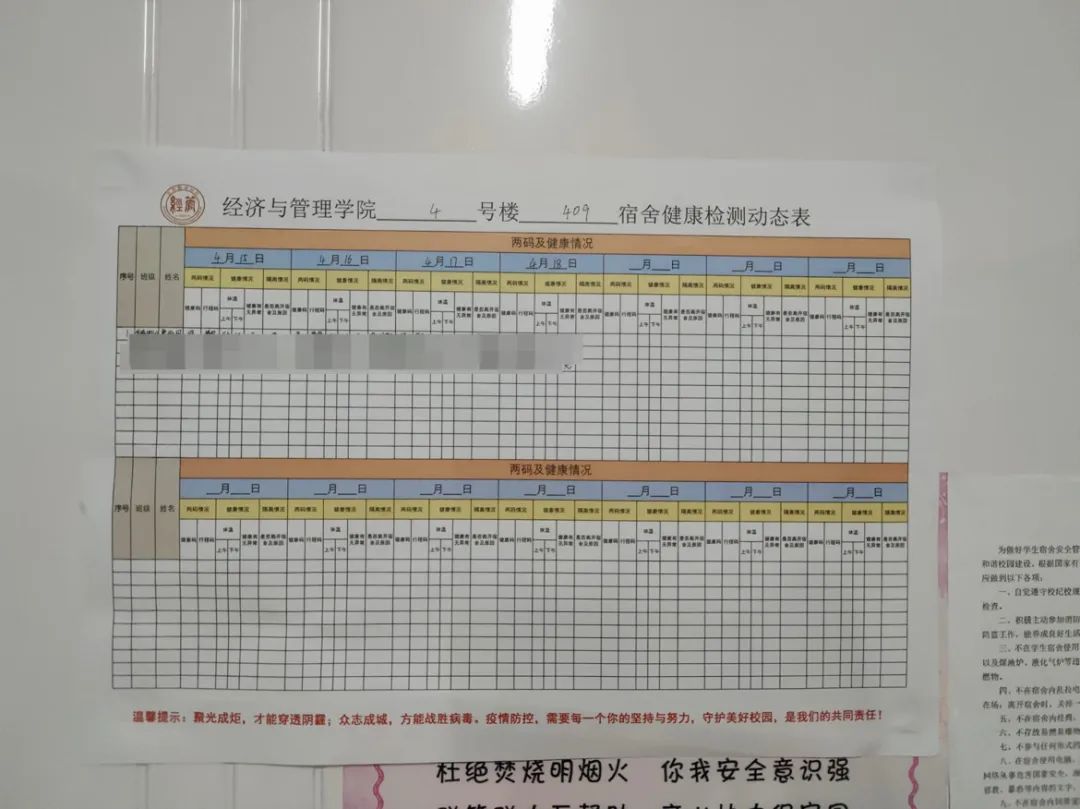 经济与管理学院 4 号楼 409 宿舍健康检测动态表
两码及健康情况
序号 班级 姓名 4月15日 4月16日 4月17日 4月18日 __月__日 __月__日 __月__日
两码情况 健康情况 隔离情况 两码情况 健康情况 隔离情况 两码情况 健康情况 隔离情况 两码情况 健康情况 隔离情况 两码情况 健康情况 隔离情况 两码情况 健康情况 隔离情况 两码情况 健康情况 隔离情况
健康码 行程码 体温 上午 下午 健康有无异常 是否离开宿舍及原因 健康码 行程码 体温 上午 下午 健康有无异常 是否离开宿舍及原因 健康码 行程码 体温 上午 下午 健康有无异常 是否离开宿舍及原因 健康码 行程码 体温 上午 下午 健康有无异常 是否离开宿舍及原因 健康码 行程码 体温 上午 下午 健康有无异常 是否离开宿舍及原因 健康码 行程码 体温 上午 下午 健康有无异常 是否离开宿舍及原因 健康码 行程码 体温 上午 下午 健康有无异常 是否离开宿舍及原因
两码及健康情况
序号 班级 姓名 __月__日 __月__日 __月__日 __月__日 __月__日 __月__日 __月__日
两码情况 健康情况 隔离情况 两码情况 健康情况 隔离情况 两码情况 健康情况 隔离情况 两码情况 健康情况 隔离情况 两码情况 健康情况 隔离情况 两码情况 健康情况 隔离情况 两码情况 健康情况 隔离情况
健康码 行程码 体温 上午 下午 健康有无异常 是否离开宿舍及原因 健康码 行程码 体温 上午 下午 健康有无异常 是否离开宿舍及原因 健康码 行程码 体温 上午 下午 健康有无异常 是否离开宿舍及原因 健康码 行程码 体温 上午 下午 健康有无异常 是否离开宿舍及原因 健康码 行程码 体温 上午 下午 健康有无异常 是否离开宿舍及原因 健康码 行程码 体温 上午 下午 健康有无异常 是否离开宿舍及原因 健康码 行程码 体温 上午 下午 健康有无异常 是否离开宿舍及原因
温馨提示：聚光成炬，才能穿透阴霾；众志成城，方能战胜病毒。疫情防控，需要每一个你的坚持与努力，守护美好校园，是我们的共同责任！
杜绝焚烧明烟火 你我安全意识强
为做好学生宿舍安全管
和谐校园建设，根据国家有
应做到以下各项：
一、自觉遵守校纪校规
检查。
二、积极主动参加消防
防监工作，培养成良好生活
三、不在学生宿舍使用
以及煤油炉、液化气炉等违
燃物。
四、不在宿舍内乱拉电
在场，离开宿舍时，关掉一
五、不在宿舍内经商，
六、不存放易燃易爆物
七、不参与任何形式的
八、在宿舍使用电脑，
网络从事危害国家安全、
容教、暴恐等内容的文字、
九、不在宿舍内饲养